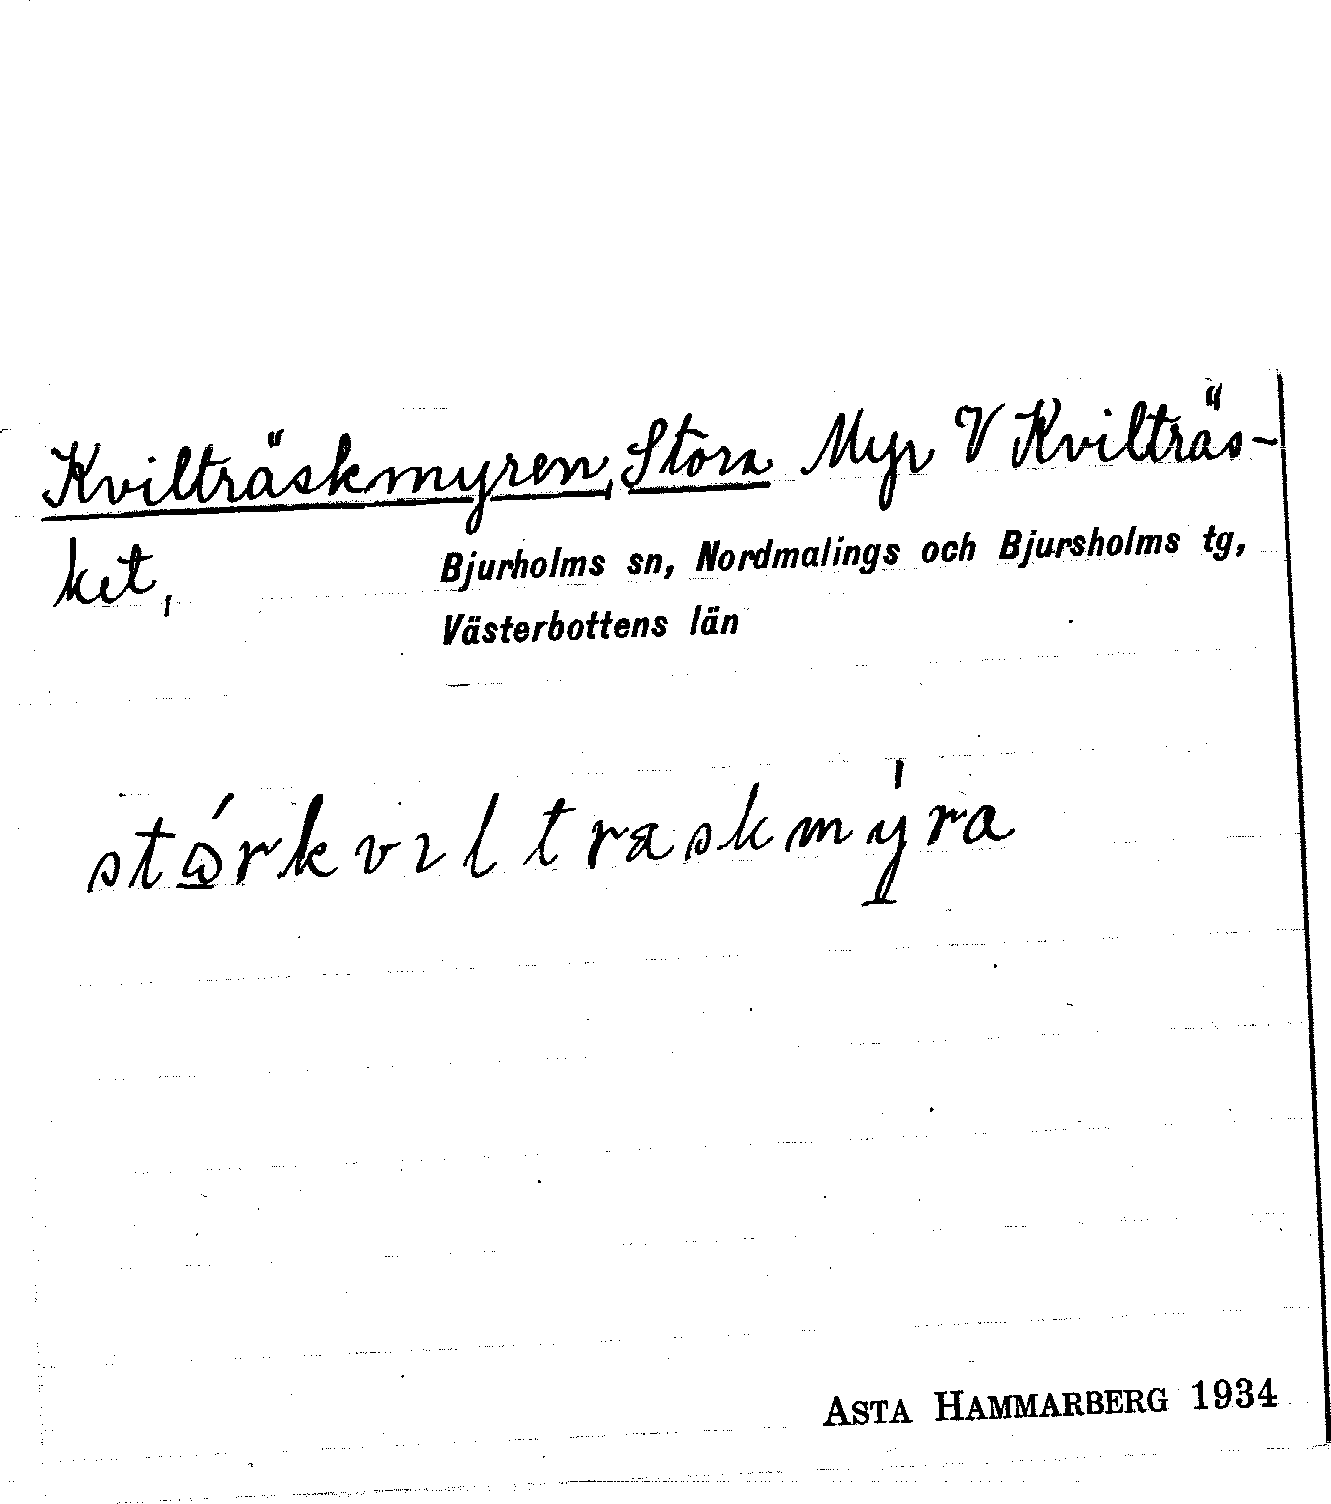 Kvilträskmyren, Stora Myr V Kvilträs-
ket,
Bjurholms sn, Nordmalings och Bjursholms tg,
Västerbottens län
stώ̲rkvıltraskmý̲ra
ASTA HAMMARBERG 1934